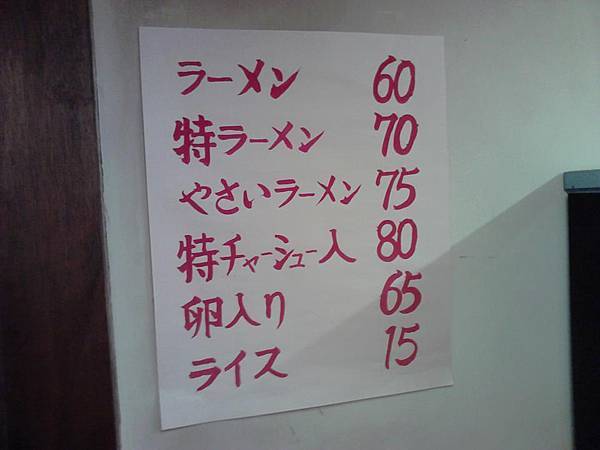 ラーメン 60
特ラーメン 70
やさいラーメン 75
特チャーシュー入 80
卵入り 65
ライス 15